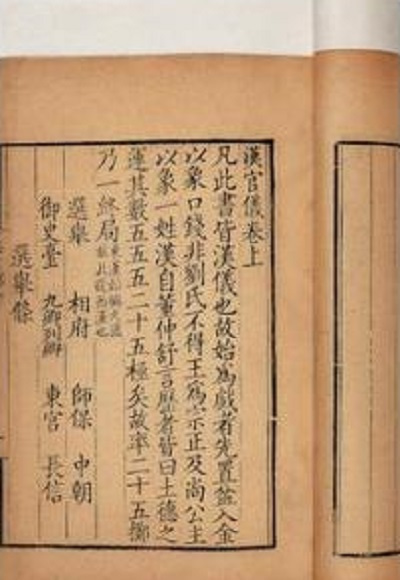 漢官儀卷上
凡此書皆漢儀也故始為戲者先置盆入金
以象口錢非劉氏不得王為宗正及尚公主
以象一姓漢自董仲舒言歷者皆曰土德之
運其數五五五二十五極矣故率二十五擲
乃一終局
選舉 相府 師保 中朝
御史臺 九卿列卿 東宮 長信
選舉條